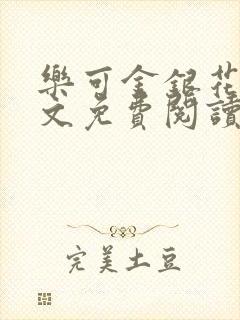 樂可金銀花
文免費閱讀
完美土豆